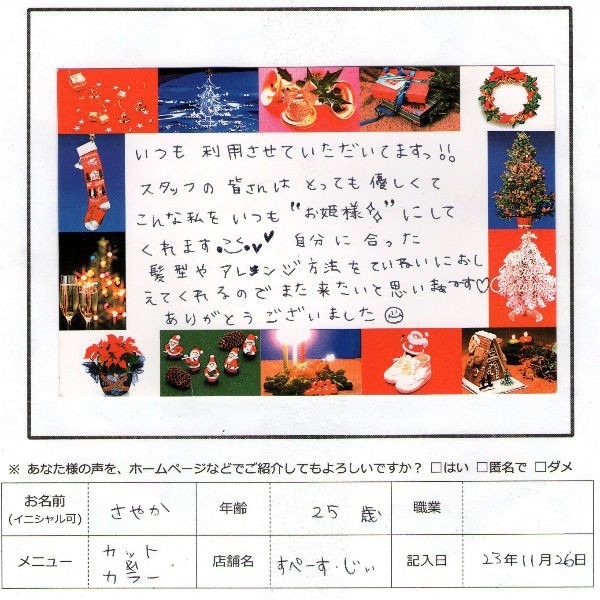 いつも 利用させていただいてますっ!!
スタッフの 皆さんは とっても 優しくて
こんな私を いつも "お姫様" にして
くれます 自分に 合った
髪型や アレンジ方法を ていねいにおし
えてくれるので また 来たいと 思います♡
ありがとうございました☺
※ あなた様の声を、ホームページなどでご紹介してもよろしいですか? □はい □匿名で □ダメ
お名前 (イニシャル可) さやか 年齢 25 歳 職業
メニュー カット & カラー 店舗名 すぺーす・じぃ 記入日 23年11月26日